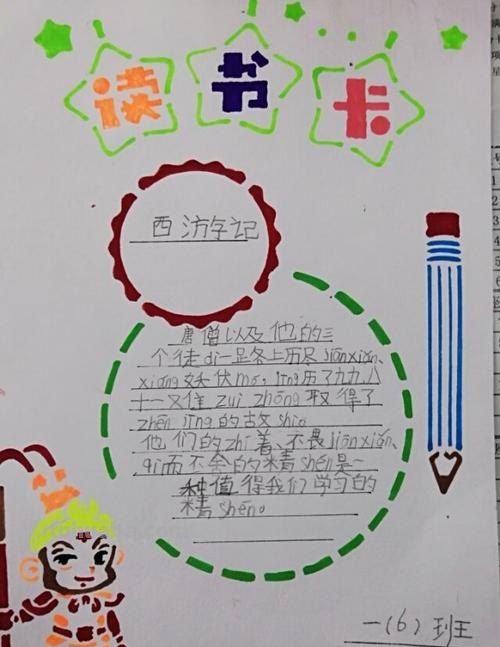 读书卡
西游字记
唐僧以及他的三
个徒di一足各上历尽jiānxiǎn、
xiáng妖伏mó,jīng历了九九八
十一又住zuì zhōng取得了
zhēn jīng的故shio
他们的zhí着、不畏jiānxiǎn、
qi而不舍的精shén是一
种值得我们学习的
精shéno
一(6)班